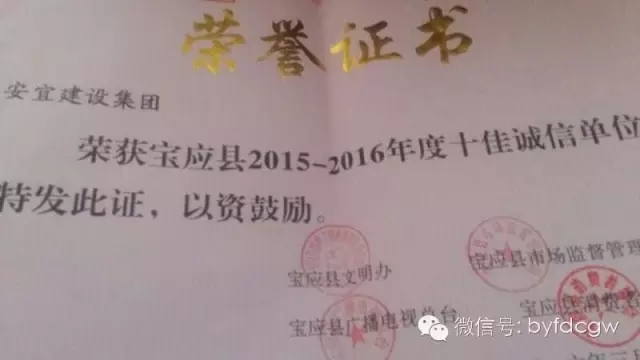 荣誉证书
安宜建设集团
荣获宝应县2015-2016年度十佳诚信单位
特发此证，以资鼓励。
宝应县文明办
宝应县市场监督管理
宝应县广播电视总台
宝应县消费者
微信号: byfdcgw